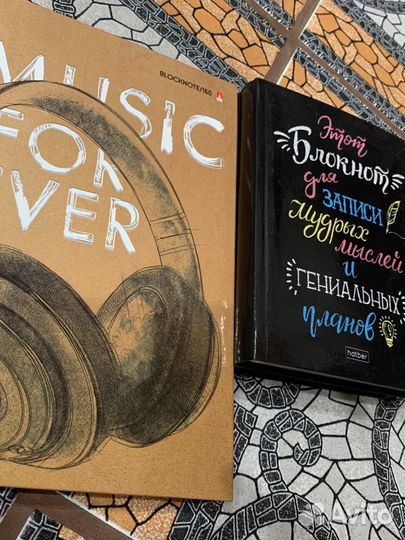 BLOCKNOTE/160
MUSIC
FOR
EVER
Этот
Блокнот
для
ЗАПИСИ
мудрых
мыслей
и
ГЕНИАЛЬНЫХ
планов
hatber
Avito